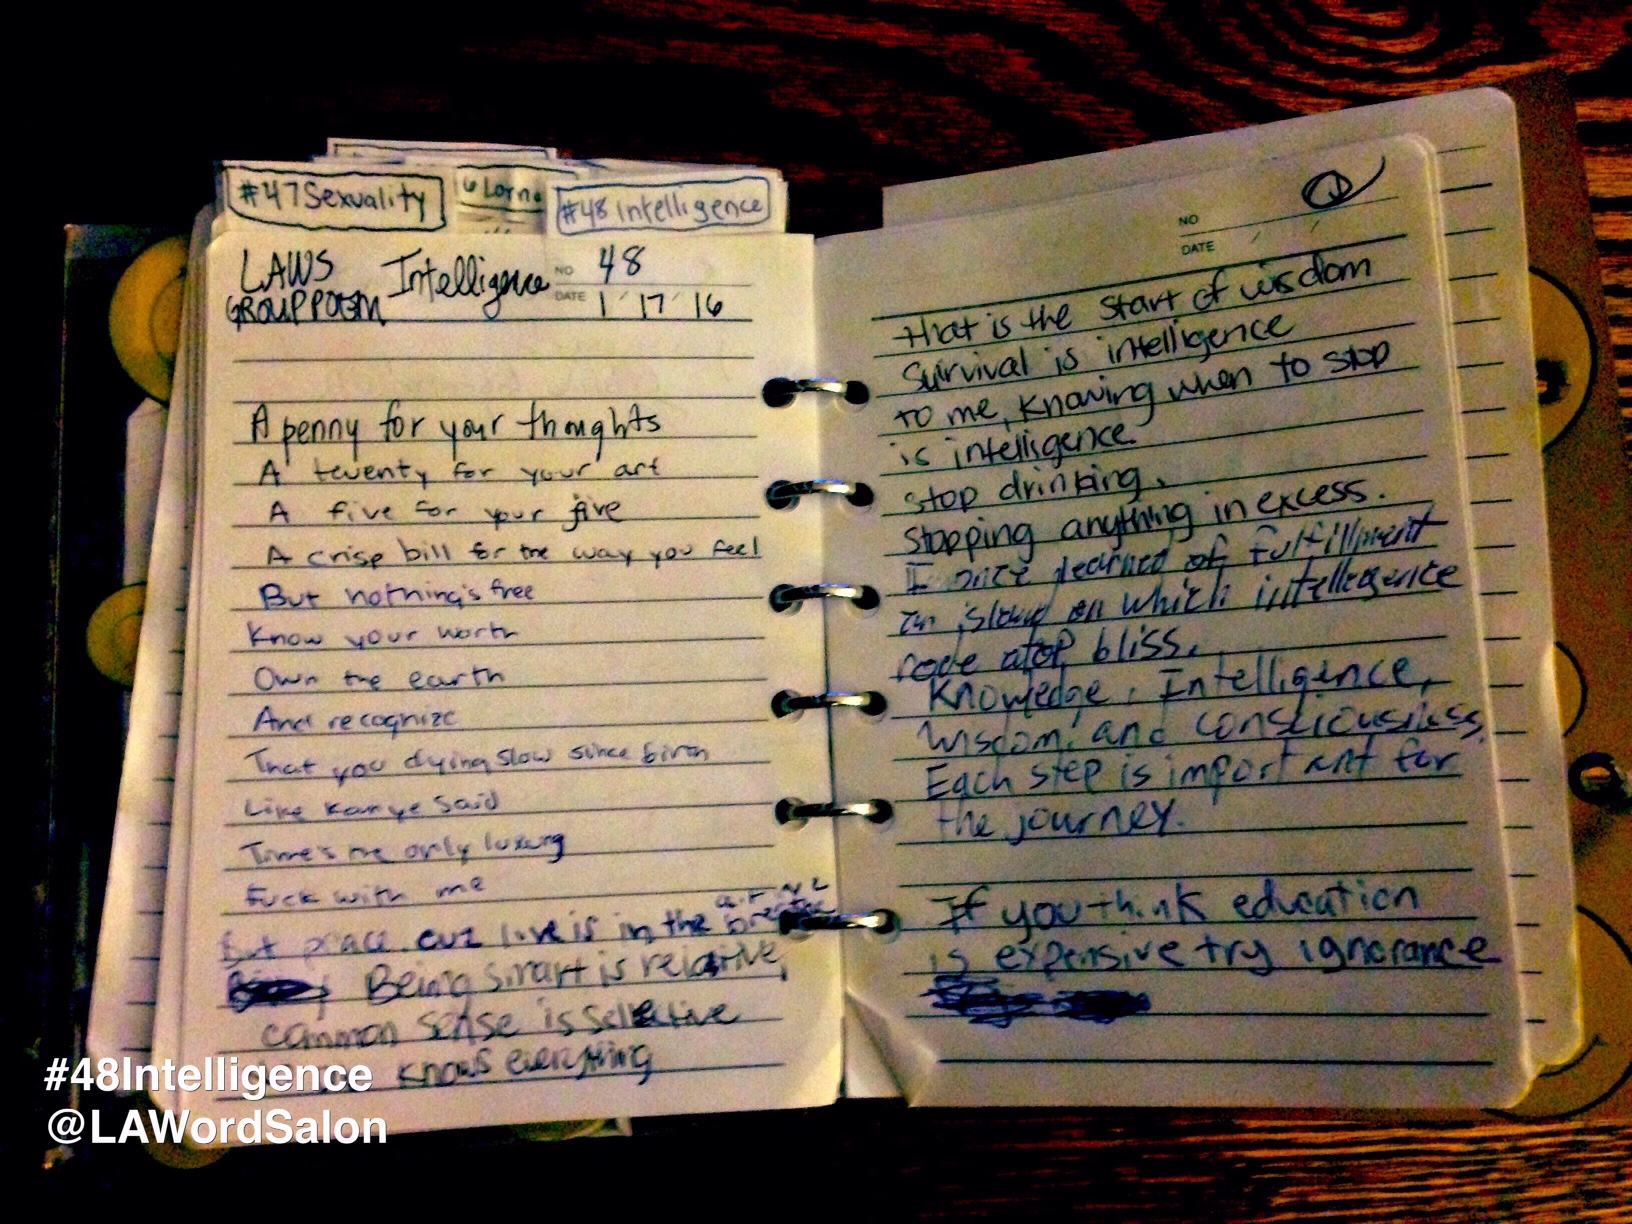 #47Sexuality
#48 Intelligence
LAWS
GROUP POEM
Intelligence
NO 48
DATE 1 / 17 / 16
A penny for your thoughts
A twenty for your art
A five for your jive
A crisp bill for the way you feel
But nothing's free
Know your worth
Own the earth
And recognize
That you dying slow since birth
Like Kanye said
Time's the only luxury
Fuck with me
But peace cuz love is in the
Being smart is relative,
common sense is selective
knows everything
NO
DATE / /
that is the start of wisdom
Survival is intelligence
to me, knowing when to stop
is intelligence
stop drinking.
Stopping anything in excess.
I once learned of fulfillment
on which intelligence
atop bliss.
Knowledge, Intelligence,
Wisdom, and consciousness.
Each step is important for
the journey.
If you think education
is expensive try ignorance
#48Intelligence
@LAWordSalon